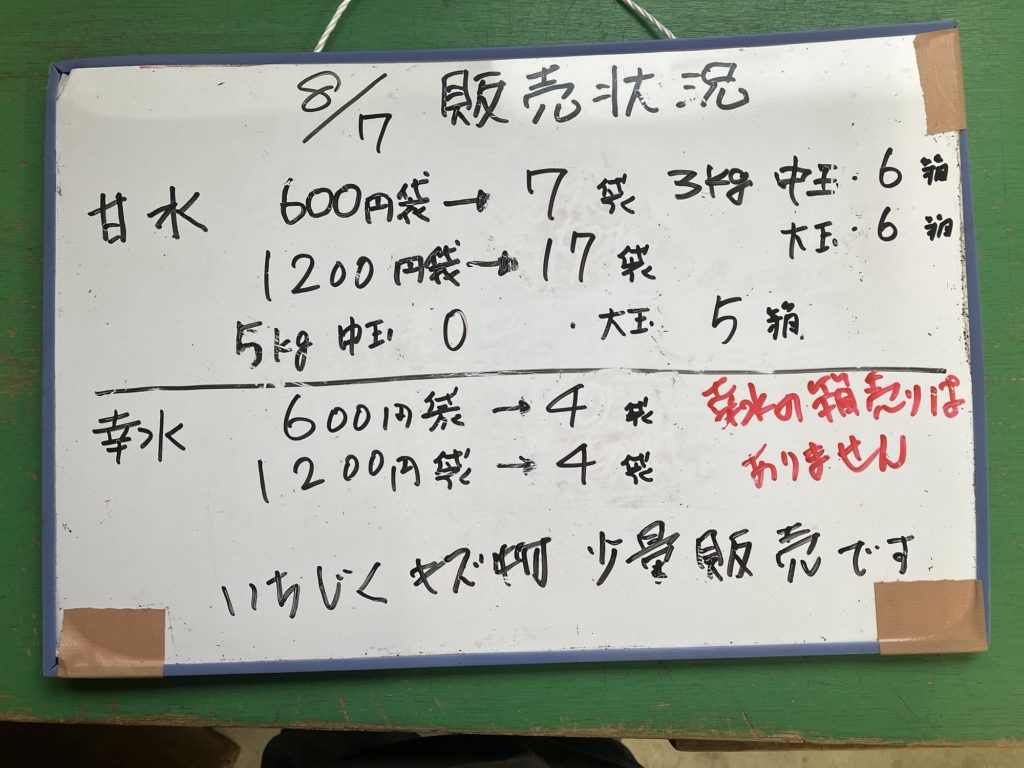 8/7 販売状況
甘水 600円袋→7袋 3kg 中玉・6箱
大玉・6箱
1200円袋→17袋
5kg 中玉 0 ・大玉 5箱
幸水 600円袋→4袋 幸水の箱売りは
1200円袋→4袋 ありません
いちじくキズ物少量販売です